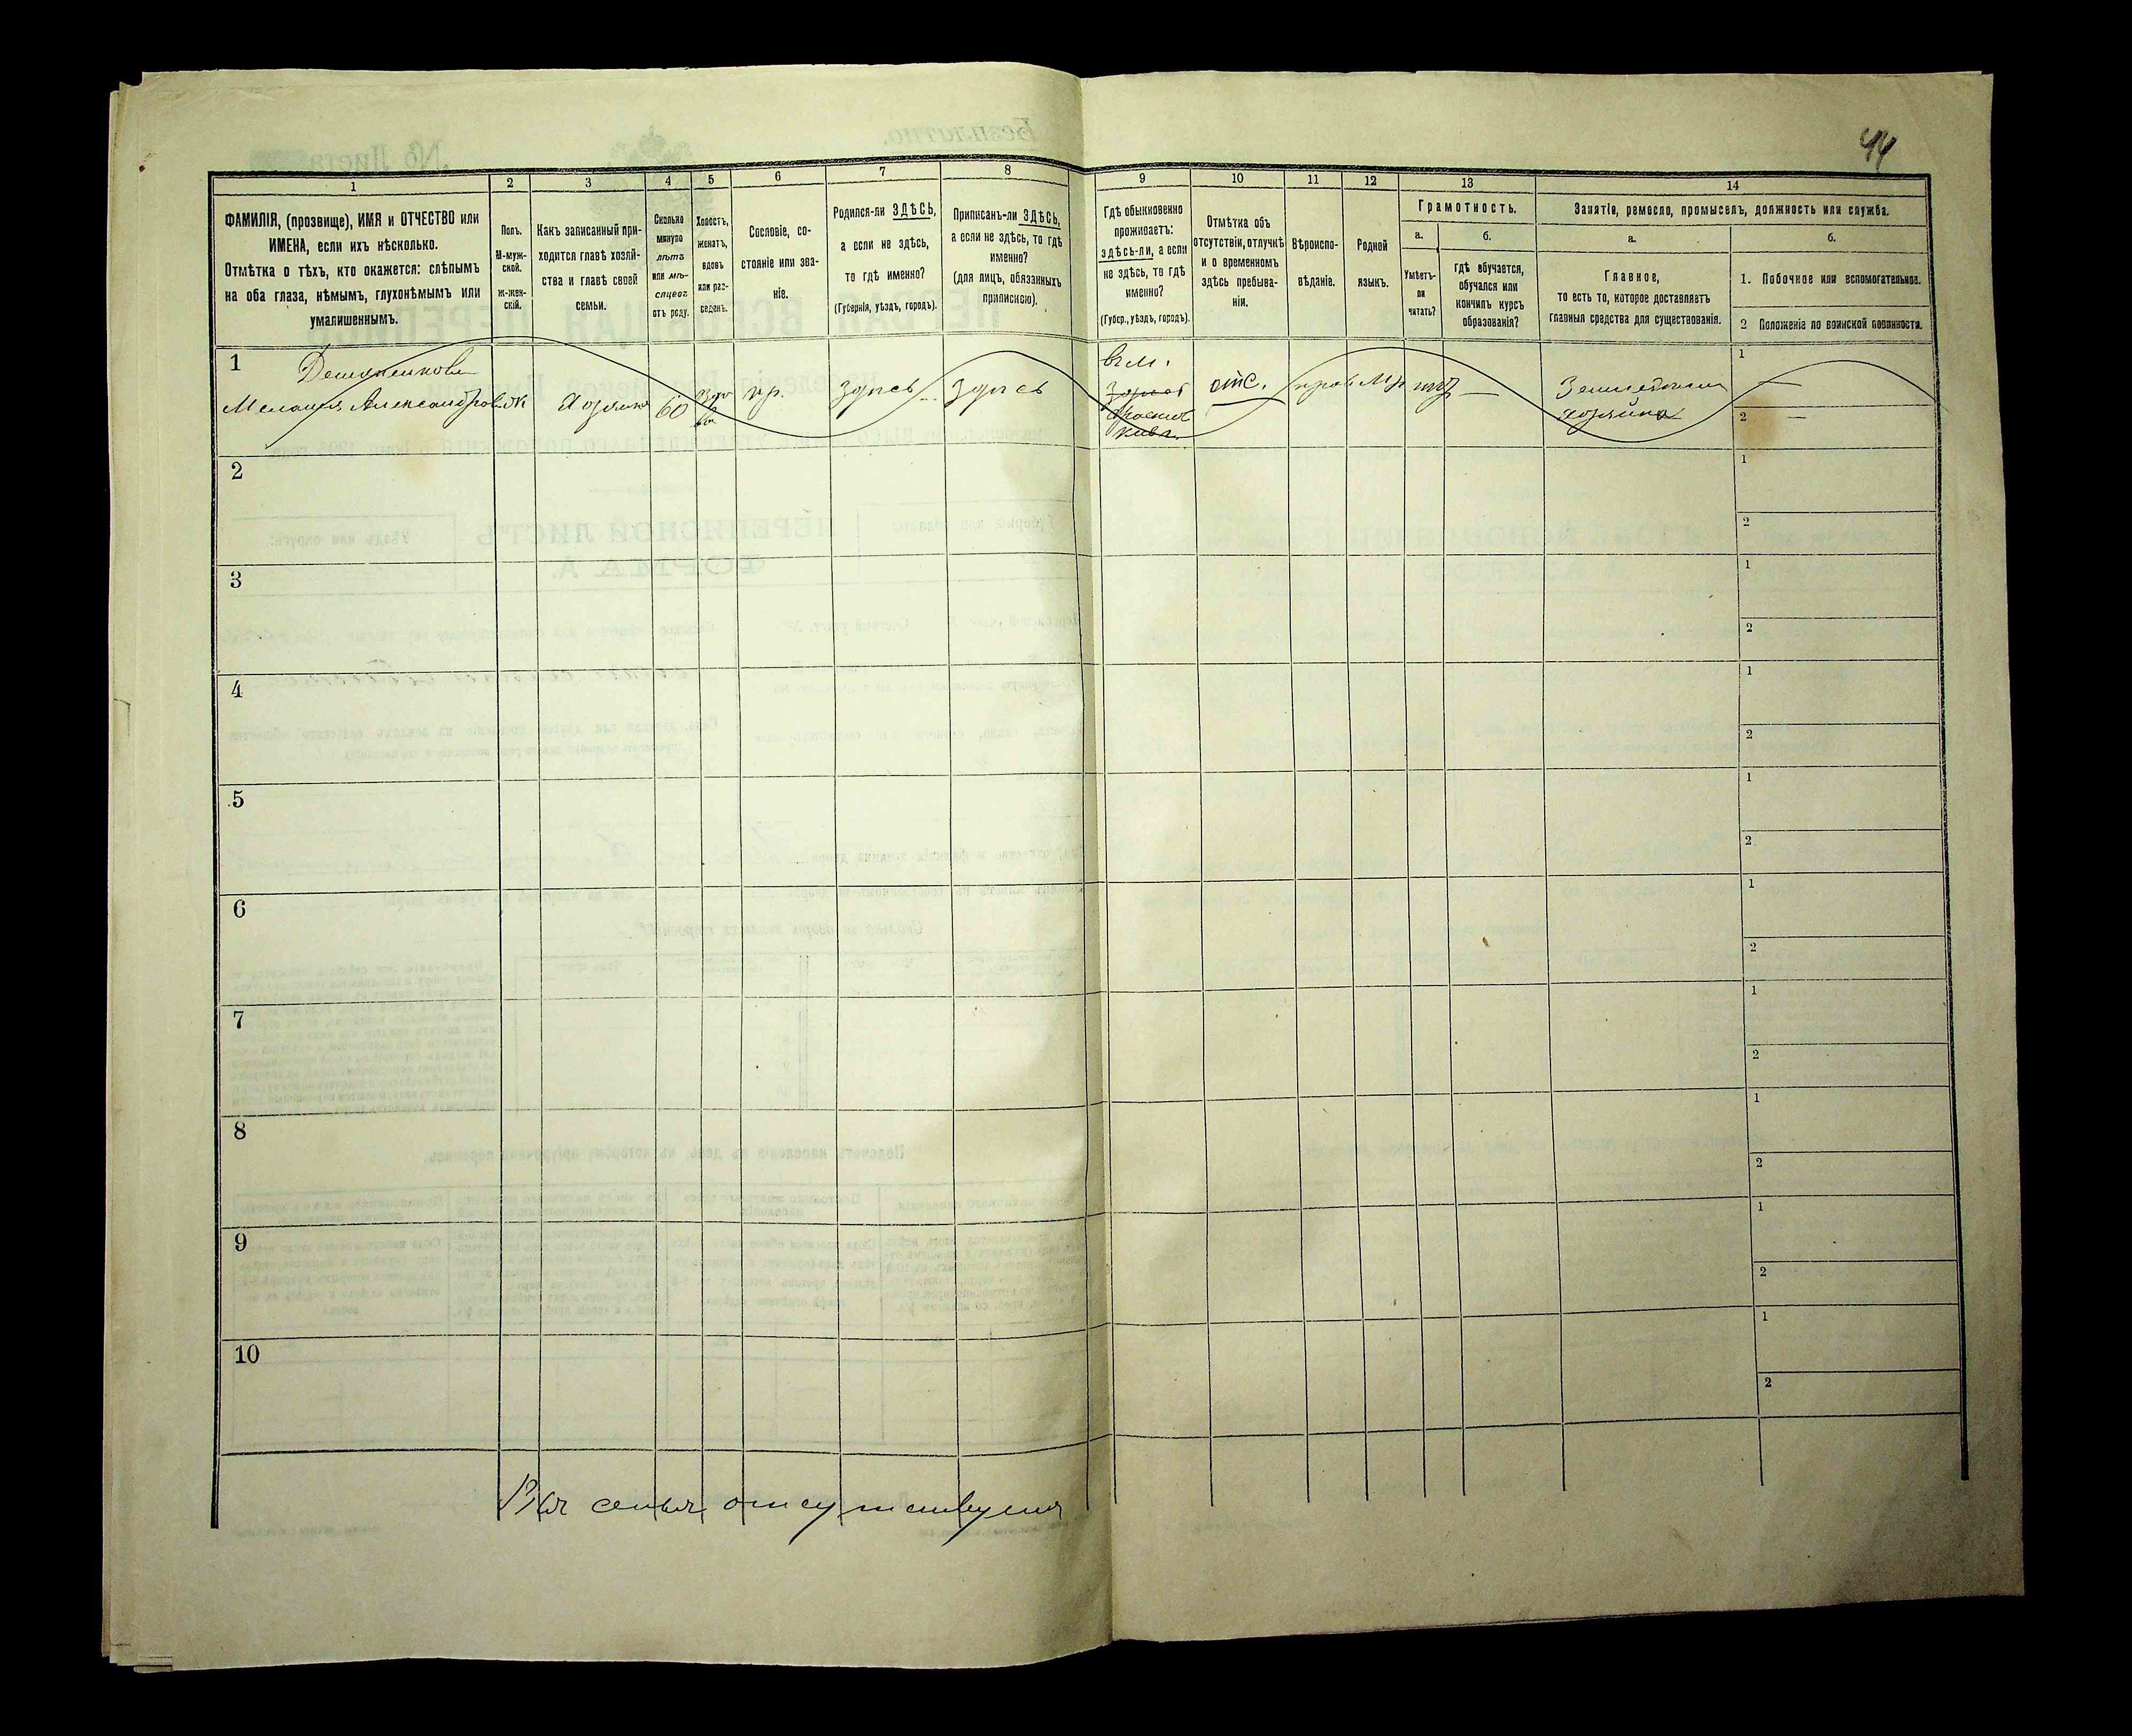 44
1
2
3
4
5
6
7
8
9
10
11
12
13
14
ФАМИЛІЯ, (прозвище), ИМЯ и ОТЧЕСТВО или
ИМЕНА, если ихъ нѣсколько.
Отмѣтка о тѣхъ, кто окажется: слѣпымъ
на оба глаза, нѣмымъ, глухонѣмымъ или
умалишеннымъ.
Полъ.
М-муж-
ской.
ж-жен-
скій.
Какъ записанный при-
ходится главѣ хозяй-
ства и главѣ своей
семьи.
Сколько
минуло
лѣтъ
или мѣ-
сяцевъ
отъ роду.
Холостъ,
женатъ,
вдовъ
или раз-
веденъ.
Сословіе, со-
стояніе или зва-
ніе.
Родился-ли ЗДѢСЬ,
а если не здѣсь,
то гдѣ именно?
(Губернія, уѣздъ, городъ).
Приписанъ-ли ЗДѢСЬ,
а если не здѣсь, то гдѣ
именно?
(для лицъ, обязанныхъ
припискою).
Гдѣ обыкновенно
проживаетъ:
здѣсь-ли, а если
не здѣсь, то гдѣ
именно?
(Губер., уѣздъ, городъ).
Отмѣтка объ
отсутствіи, отлучкѣ
и о временномъ
здѣсь пребыва-
ніи.
Вѣроиспо-
вѣданіе.
Родной
языкъ.
Грамотность.
а.
Умѣетъ-
ли
читать?
б.
Гдѣ обучается,
обучался или
кончилъ курсъ
образованія?
Занятіе, ремесло, промыселъ, должность или служба.
а.
Главное,
то есть то, которое доставляетъ
главныя средства для существованія.
б.
1. Побочное или вспомогательное.
2 Положеніе по воинской повинности.
1
Александров
ж
60
кр.
Здѣсь
Здѣсь
отс.
прав
1 —
2 —
2
1
2
3
1
2
4
1
2
5
1
2
6
1
2
7
1
2
8
1
2
9
1
2
10
1
2
Вся семья отсутствуетъ